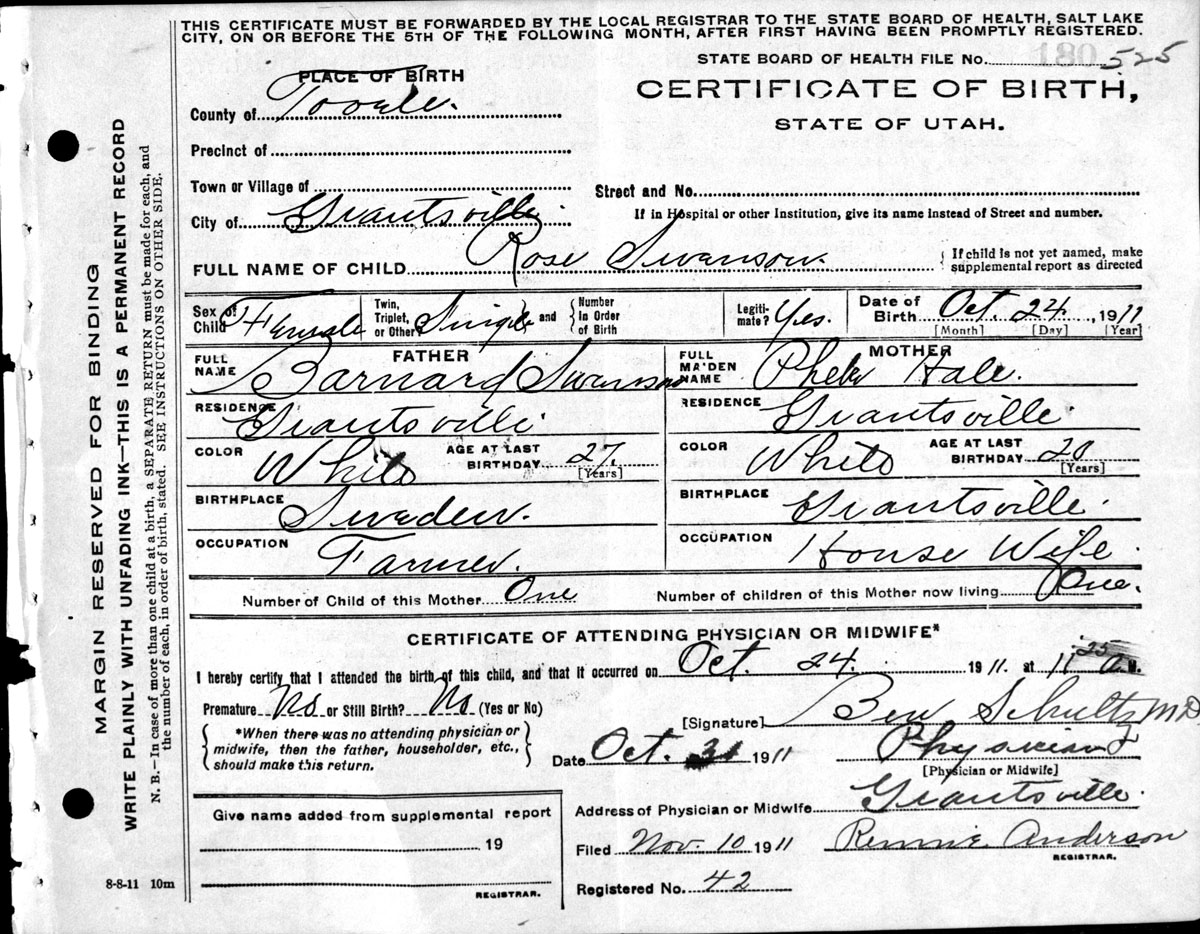 THIS CERTIFICATE MUST BE FORWARDED BY THE LOCAL REGISTRAR TO THE STATE BOARD OF HEALTH, SALT LAKE
CITY, ON OR BEFORE THE 5TH OF THE FOLLOWING MONTH, AFTER FIRST HAVING BEEN PROMPTLY REGISTERED.
STATE BOARD OF HEALTH FILE No. 525
PLACE OF BIRTH
CERTIFICATE OF BIRTH,
STATE OF UTAH.
County of Tooele.
Precinct of
Town or Village of
Street and No.
City of Grantsville.
If in Hospital or other Institution, give its name instead of Street and number.
FULL NAME OF CHILD Rose Swanson.
If child is not yet named, make
supplemental report as directed
Sex of Child Female
Twin, Triplet, or Other? Single and
Number In Order of Birth
Legiti-mate? Yes.
Date of Birth Oct. 24, 1911
[Month] [Day] [Year]
FATHER
FULL NAME Barnard Swanson
RESIDENCE Grantsville
COLOR White
AGE AT LAST BIRTHDAY 27
[Years]
BIRTHPLACE Sweden.
OCCUPATION Farmer.
MOTHER
FULL MAIDEN NAME Phebe Hale.
RESIDENCE Grantsville.
COLOR White
AGE AT LAST BIRTHDAY 20
[Years]
BIRTHPLACE Grantsville.
OCCUPATION House Wife.
Number of Child of this Mother One
Number of children of this Mother now living One.
CERTIFICATE OF ATTENDING PHYSICIAN OR MIDWIFE*
I hereby certify that I attended the birth of this child, and that it occurred on Oct. 24. 1911, at 11 25 a. M.
Premature No or Still Birth? No (Yes or No)
[Signature] Ben Schultz MD
*When there was no attending physician or
midwife, then the father, householder, etc.,
should make this return.
Date Oct. 31 1911
Physician
[Physician or Midwife]
Give name added from supplemental report
19
REGISTRAR.
Address of Physician or Midwife Grantsville.
Filed Nov. 10 1911
Rennie Anderson
REGISTRAR.
Registered No. 42
8-8-11 10m
MARGIN RESERVED FOR BINDING
WRITE PLAINLY WITH UNFADING INK—THIS IS A PERMANENT RECORD
N. B.—In case of more than one child at a birth, a SEPARATE RETURN must be made for each, and
the number of each, in order of birth, stated. SEE INSTRUCTIONS ON OTHER SIDE.